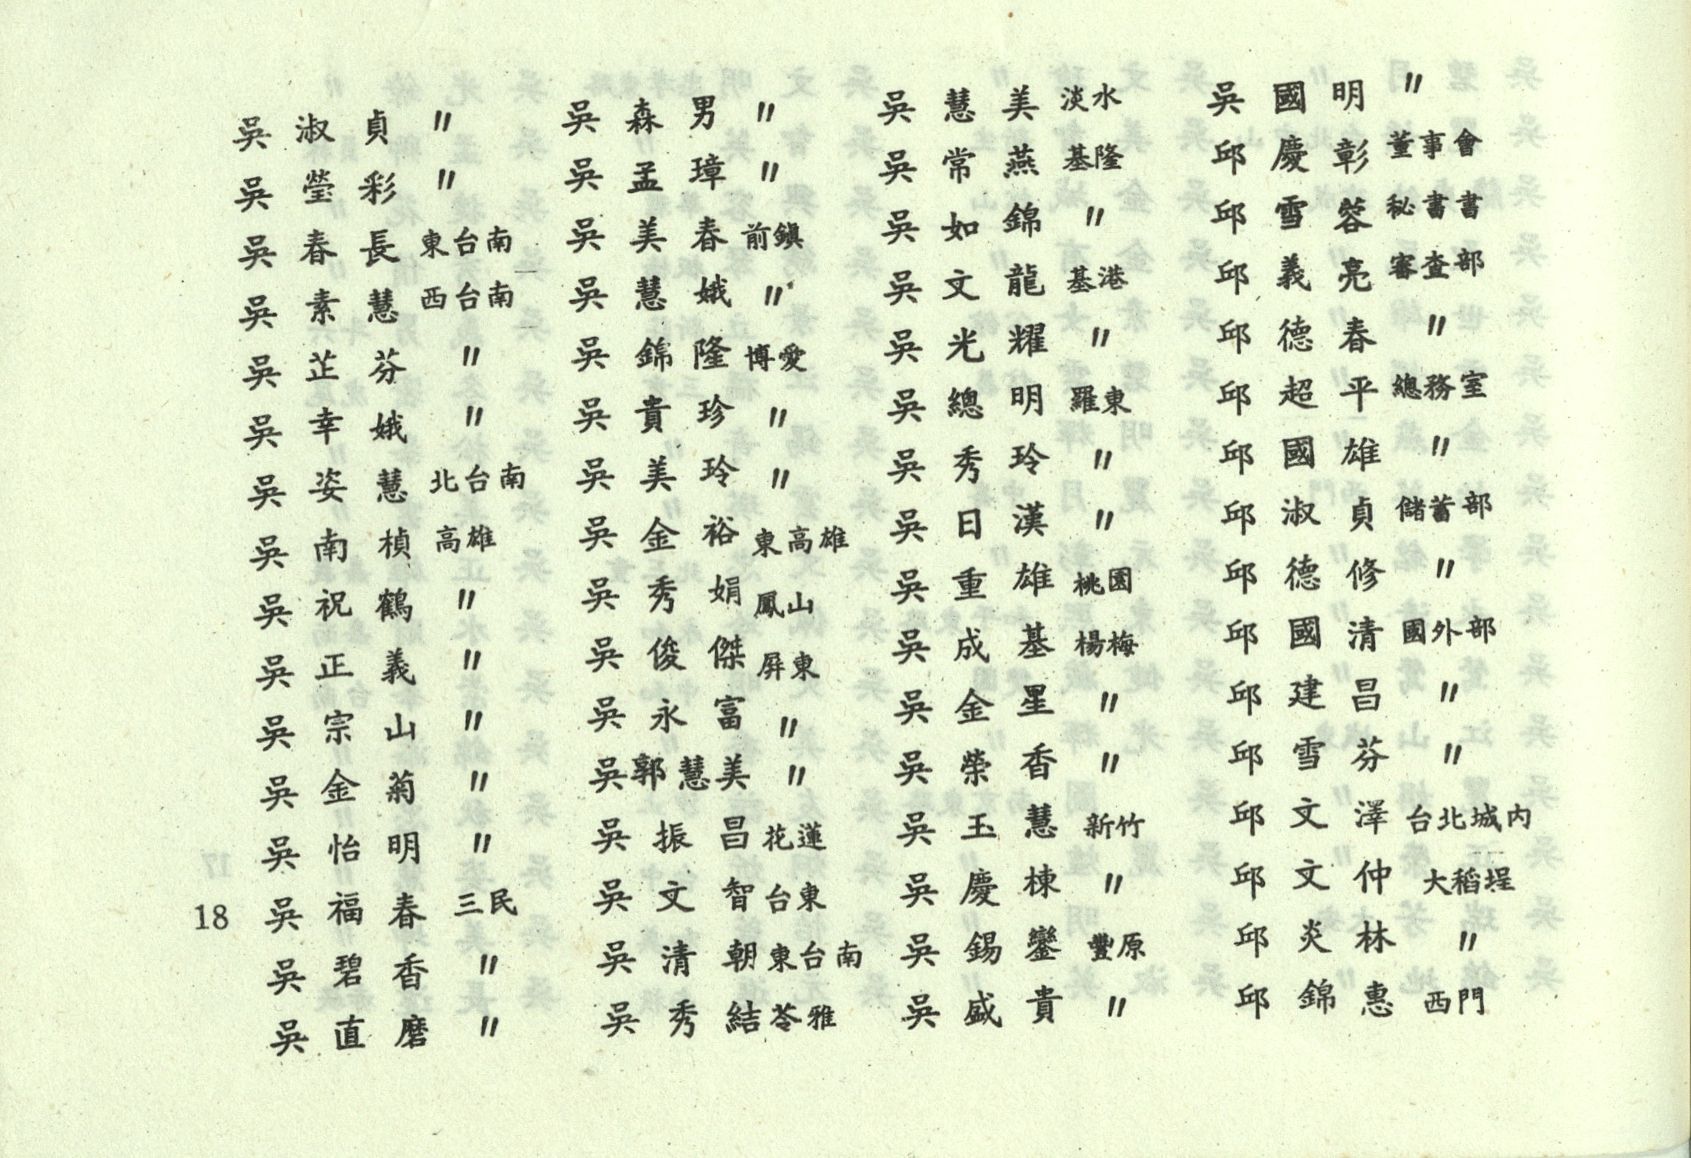 吳淑貞 〃
吳瑩彩 〃
吳春長 東台南
吳素慧 西台南
吳芷芬 〃
吳幸娥 〃
吳姿慧 北台南
吳南楨 高雄
吳祝鶴 〃
吳正義 〃
吳宗山 〃
吳金菊 〃
吳怡明 〃
吳福春 三民
吳碧香 〃
吳直磨 〃
吳森男 〃
吳孟璋 〃
吳美春 前鎮
吳慧娥 〃
吳錦隆 博愛
吳貴珍 〃
吳美玲 〃
吳金裕 東高雄
吳秀娟 鳳山
吳俊傑 屏東
吳永富 〃
吳郭慧美 〃
吳振昌 花蓮
吳文智 台東
吳清朝 東台南
吳秀結 苓雅
吳慧美 淡水
吳常燕 基隆
吳如錦 〃
吳文龍 基港
吳光耀 〃
吳總明 羅東
吳秀玲 〃
吳日漢 〃
吳重雄 桃園
吳成基 楊梅
吳金星 〃
吳榮香 〃
吳玉慧 新竹
吳慶棟 〃
吳錫鑾 豐原
吳盛貴 〃
吳國明 〃
邱慶彰 董事會
邱雪蓉 秘書書
邱義亮 審查部
邱德春 〃
邱超平 總務室
邱國雄 〃
邱淑貞 儲蓄部
邱德修 〃
邱國清 國外部
邱建昌 〃
邱雪芬 〃
邱文澤 台北城内
邱文仲 大稻埕
邱炎林 〃
邱錦惠 西門
18